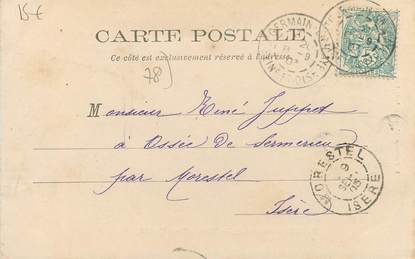 15€
CARTE POSTALE
Ce côté est exclusivement réservé à l'adresse.
78)
Monsieur René
à Ossée de Sermerieu
par Morestel
Isère
MORESTEL
ISÈRE